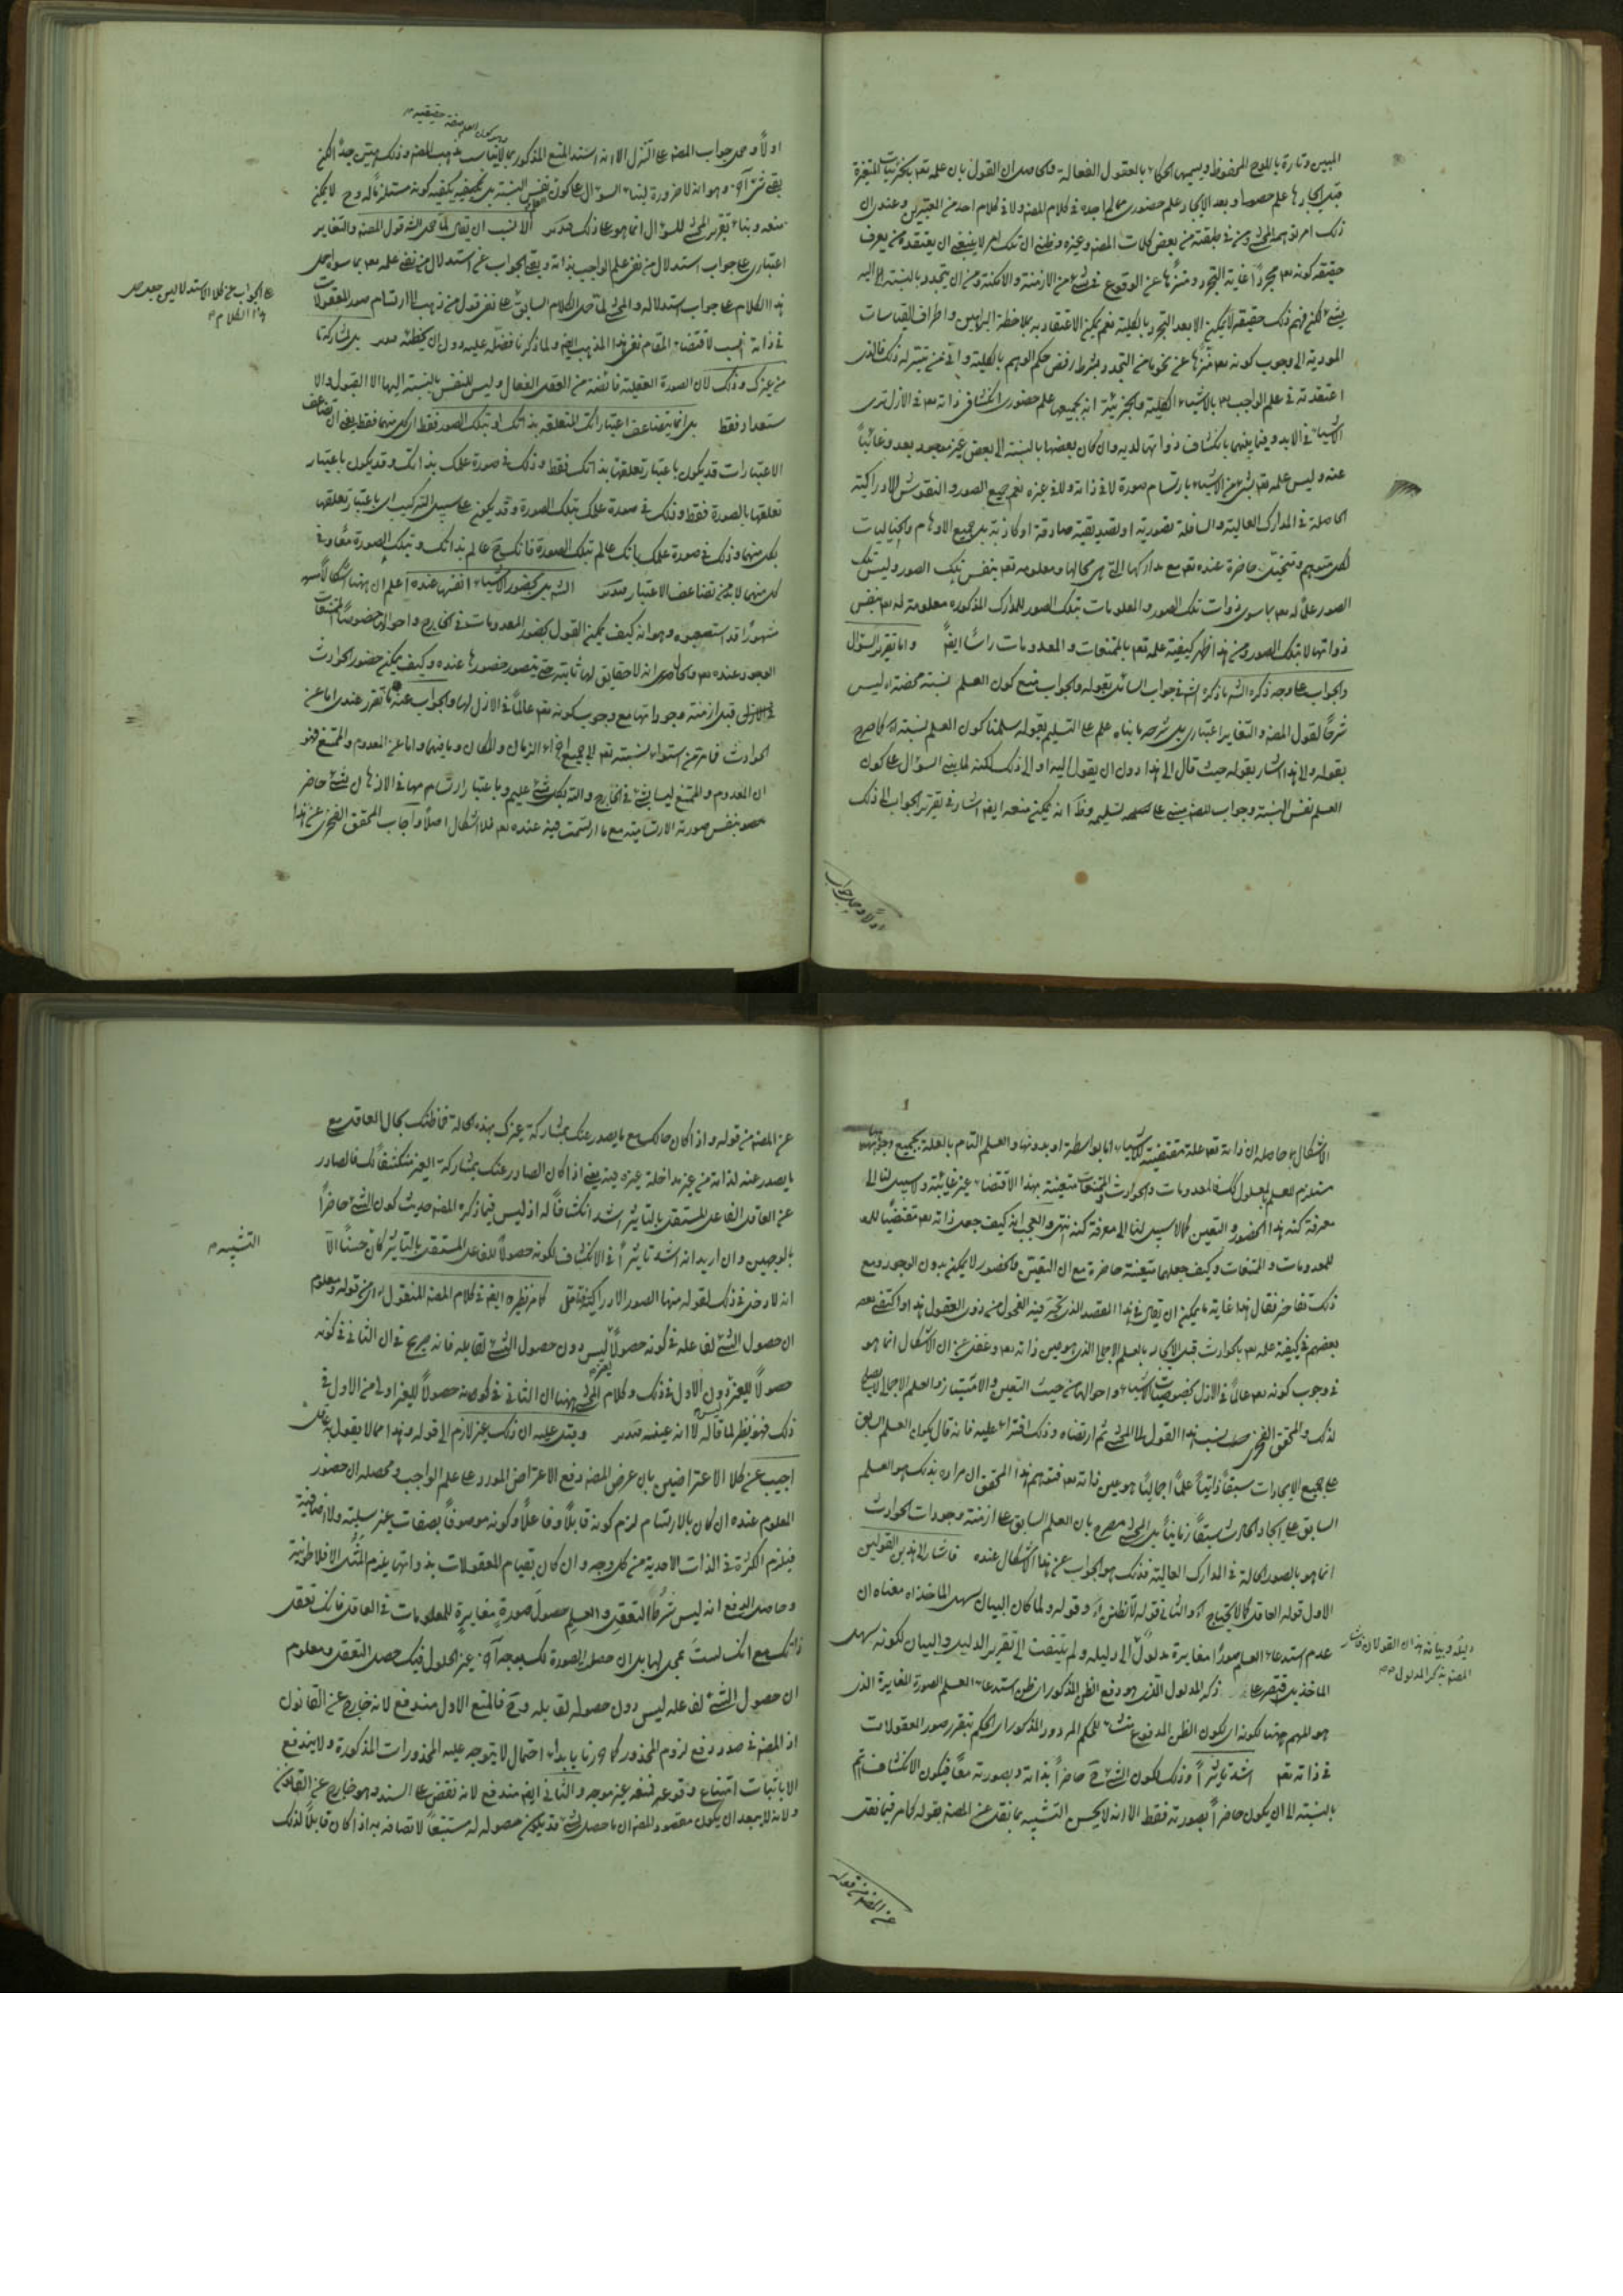 المبين وتارة باللوح المحفوظ ويسميها الحكماء بالعقول الفعالة والحاصل ان القول بان علمه تعم بالجزئيات المتغيرة
قبل ايجادها علم حصولي وبعد الايجاد علم حضوري مما لم اجده في كلام المصنف ولا في كلام احد من المعتبرين وعندي ان
ذلك امر توهمه المحشي من بعض كلمات المصنف وغيره وظني ان تلك امر لا ينبغي ان يعتقده من يعرف
حقيقة كونه تعم مجردا غاية التجرد ومنزها عن الوقوع في شيء من الازمنة والامكنة ومن ان يتجدد بالنسبة اليه
شيء لكن فهم ذلك حقيقة لا يمكن الا بعد التجرد بالكلية نعم يمكن الاعتقاد به بملاحظة البراهين واطراف القياسات
المودية الى وجوب كونه تعم منزها عن نحو ما من التجدد بشرط رفض حكم الوهم بالكلية واني لمن تيسر له ذلك فالذي
اعتقدته في علم الواجب تعم بالاشياء الكلية والجزئية انه بجميعها علم حضوري انكشافي ذاته تعم في الازل يرى
الاشياء في الابد وفيما بينهما بانكشاف ذواتها لديه وان كان بعضها بالنسبة الى بعض غير موجود بعد وغائبا
عنه وليس علمه تعم بشيء من الاشياء بارتسام صورة لا في ذاته ولا في غيره نعم جميع الصور والنقوش الادراكية
الحاصلة في المدارك العالية والسافلة تصورية او تصديقية صادقة او كاذبة بل جميع الاوهام والخياليات
لكل متوهم ومتخيل حاضرة عنده تعم مع مداركها التي هي محالها ومعلومة تعم بنفس تلك الصور وليس تلك
الصور علما له تعم بما سوى ذوات تلك الصور والمعلومات بتلك الصور للمدارك المذكورة معلومة له تعم بنفس
ذواتها لا بتلك الصور ومن هذا ظهر كيفية علمه تعم بالممتنعات والمعدومات راسا ايضا واما تقرير السؤال
والجواب على وجه ذكره الشه ما ذكره الشه في جواب السائل بقوله والجواب منع كون العلم نسبة محضة اه ليس
شرحا لقول المصنف والتغاير اعتباري بل شرحه ما بناه على التسليم بقوله سلمنا كون العلم نسبة اه كما صرح
بقوله والى هذا اشار بقوله حيث قال الى هذا دون ان يقول اليه او الى ذلك لكنه لما بنى السؤال على كون
العلم نفس النسبة وجواب المصنف مبني على تسليمه وظ انه يمكن منعه ايضا اشار في تقرير الجواب الى ذلك
اولا وحمل جواب
وهو كون العلم صفة حقيقية
اولا وحمل جواب المصنف على التنزل الا انه اسند المنع المذكور بما لا يناسب مذهب المصنف وذلك هين جدا لكن
بقي شيء آخر وهو انه لا ضرورة لبناء السؤال على كون العلم نفس النسبة بل يكفيه كونه مستلزما له وح لا يمكن
منعه وبناء تقرير المحشي للسؤال انما هو على ذلك فتدبر الا نسب ان يقال لما حمل الشه قول المصنف والتغاير
اعتباري على جواب استدلال من نفى علم الواجب بذاته وبقي الجواب عن استدلال من نفى علمه تعم بما سواه حمل
الجواب عن كلا الاستدلالين جعل حمل هذا الكلام
هذا الكلام على جواب استدلاله والمحشي لما حمل الكلام السابق على نفي قول من ذهب الى ارتسام صور المعقولات
في ذاته نسب لاقتضاء المقام نفي هذا المذهب ايضا ولما ذكرنا فضله عليه دون ان يخطئه بل بمشاركة ما
من غيرك وذلك لان الصورة العقلية فائضة من العقل الفعال وليس للنفس بالنسبة اليها الا القبول والا
ستعداد فقط بل انما يتضاعف اعتباراتك المتعلقة بذاتك او بتلك الصور فقط اي كل منهما فقط يعني ان تضاعف
الاعتبارات قد يكون باعتبار تعلقها بذاتك فقط وذلك في صورة علمك بذاتك وقد يكون باعتبار
تعلقها بالصورة فقط وذلك في صورة علمك بتلك الصورة وقد يكون على سبيل التركيب اي باعتبار تعلقها
بكل منهما وذلك في صورة علمك بانك عالم بتلك الصورة فانك ح عالم بذاتك وبتلك الصورة معا وفي
كل منهما لا بد من تضاعف الاعتبار فتدبر الشه بل بحضور الاشياء انفسها عنده اعلم ان ههنا اشكالا
مشهورا قد استصعبوه وهو انه كيف يمكن القول بحضور المعدومات في الخارج واحوالها خصوصا الممتنعات
الوجود عنده تعم والحال انه لا حقايق لها ثابتة حتى يتصور حضورها عنده وكيف يمكن حضور الحوادث
في الازل قبل ازمنة وجوداتها مع وجوب كونه تعم عالما في الازل لها والجواب عنه ما تقرر عندي اما عن
الحوادث فما مر من استواء نسبته تعم الى جميع اجزاء الزمان والمكان وما فيهما واما عن المعدوم والممتنع فهو
ان المعدوم والممتنع ليسا بشيء في الخارج والله بكل شيء عليم وباعتبار ارتسامهما في الاذهان شيء حاضر
بنفس صورته الارتسامية مع ما ارتسمت فيه عنده تعم فلا اشكال اصلا واجاب المحقق الفخري عن هذا
الاشكال بما حاصله ان ذاته تعم علة مقتضية للاشياء اما بواسطة او بدونها والعلم التام بالعلة بجميع وجوهها
مستلزم للعلم بالمعلول فالمعدومات والحوادث والممتنعات متعينة بهذا الاقتضاء غير غائبة ولا سبيل لنا الى
معرفة كنه هذا الحضور والتعين كما لا سبيل لنا الى معرفة كنه انتهى والعجب انه كيف جعل ذاته تعم مقتضيا
للمعدومات والممتنعات وكيف جعلها متعينة حاضرة مع ان التعين والحضور لا يمكن بدون الوجود ومع
ذلك تفاخر فقال هذا غاية ما يمكن ان يقال في هذا المقصد الذي تحير فيه الفحول من ذوي العقول هذا واكتفى
بعضهم في كيفية علمه تعم بالحوادث قبل الايجاد بالعلم الاجمالي الذي هو عين ذاته تعم وغفل عن ان الاشكال انما هو
في وجوب كونه تعم عالما في الازل بخصوصيات الاشياء واحوالها من حيث التعين والامتياز والعلم الاجمالي لا يصلح
لذلك والمحقق الفخري نسب هذا القول الى المحشي ثم ارتضاه وذلك افتراء عليه فانه قال بكون العلم السابق
على جميع الايجادات سبقا ذاتيا علما اجماليا هو عين ذاته تعم فتوهم هذا المحقق ان مراده بذلك هو العلم
السابق على ايجاد الحوادث سبقا زمانيا بل المحشي مصرح بان العلم السابق على ازمنة وجودات الحوادث
انما هو بالصور الحالة في المدارك العالية فذلك هو الجواب عن هذا الاشكال عنده فاشار الى هذين القولين
الاول قوله العاقل كما لا يحتاج اه والثاني قوله لا تظنن اه وقوله ولما كان البيان سهل الماخذ اه معناه ان
دليله وبيانه هذان القولان فاشار المصنف بذكر المدلول
عدم استدعاء العلم صورا مغايرة مدلول الى دليله ولم يلتفت الى تقرير الدليل والبيان لكونه سهل
الماخذ بل اقتصر على ذكر المدلول الذي هو دفع الظن المذكور اي ظن استدعاء العلم الصورة المغايرة الذي
هو المهم ههنا لكونه اي لكون الظن المدفوع منشاء للحكم المردود المذكور اي الحكم بتقرر صور المعقولات
في ذاته تعم اشد تاثيرا وذلك لكون الشيء ح حاضرا بذاته وبصورته معا فيكون الانكشاف اتم
بالنسبة الى ان يكون حاضرا بصورته فقط الا انه لا يحسن التشبيه بما نقل عن المصنف بقوله كما مر فيما نقل
عن المصنف من قوله
عن المصنف من قوله واذا كان حالك مع ما يصدر عنك بمشاركة غيرك بهذه الحالة فما ظنك بحال العاقل مع
ما يصدر عنه لذاته من غير مداخلة غيره فيه يعني اذا كان الصادر عنك بمشاركة الغير منكشفا لك فالصادر
عن العاقل الفاعل المستقل بالتاثير اشد انكشافا له اذ ليس فيما ذكره المصنف حديث كون الشيء حاضرا
التشبيه
بالوجهين وان اريد انه اشد تاثيرا في الانكشاف لكونه حصولا للفاعل المستقل بالتاثير كان حسنا الا
انه لا دخل في ذلك لقوله منها الصور الادراكية كما مر نظيره ايضا في كلام المصنف المنقول اي من قوله ومعلوم
ان حصول الشيء لفاعله في كونه حصولا لغيره ليس دون حصول الشيء لقابله فانه صريح في ان الثاني في كونه
حصولا للغير دون الاول في ذلك وكلام المحشي ههنا ان الثاني في كونه حصولا للغير اولى من الاول في
ذلك فهو نظير لما قاله لا انه عينه فتدبر وقيل عليه ان ذلك غير لازم الى قوله وهذا مما لا يقول به عاقل
اجيب عن كلا الاعتراضين بان غرض المصنف دفع الاعتراض المورد على علم الواجب ومحصله ان حضور
المعلوم عنده ان كان بالارتسام لزم كونه قابلا وفاعلا وكونه موصوفا بصفات غير سلبية ولا اضافية
فيلزم الكثرة في الذات الاحدية من كل وجه وان كان بقيام المعقولات بذواتها يلزم المثل الافلاطونية
وحاصل الدفع انه ليس شرط التعقل والعلم حصول صورة مغايرة للمعلومات في العاقل فانك تعقل
ذاتك مع انك لست بمحل لها بل ان حصل الصورة لك بوجه آخر غير الحلول فيك حصل التعقل ومعلوم
ان حصول الشيء لفاعله ليس دون حصوله لقابله وح فالمنع الاول مندفع لانه خارج عن القانون
اذ المصنف في صدد دفع لزوم المحذور كما حررنا بابداء احتمال لا يتوجه عليه المحذورات المذكورة ولا يندفع
الا باثبات امتناع وقوعه فمنعه غير موجه والثاني ايضا مندفع لانه نقض على السند وهو خارج عن القانون
ولانه لا يبعد ان يكون مقصود المصنف ان ما حصل لشيء قد يكون حصوله له مستتبعا لاتصافه به اذا كان قابلا لذلك